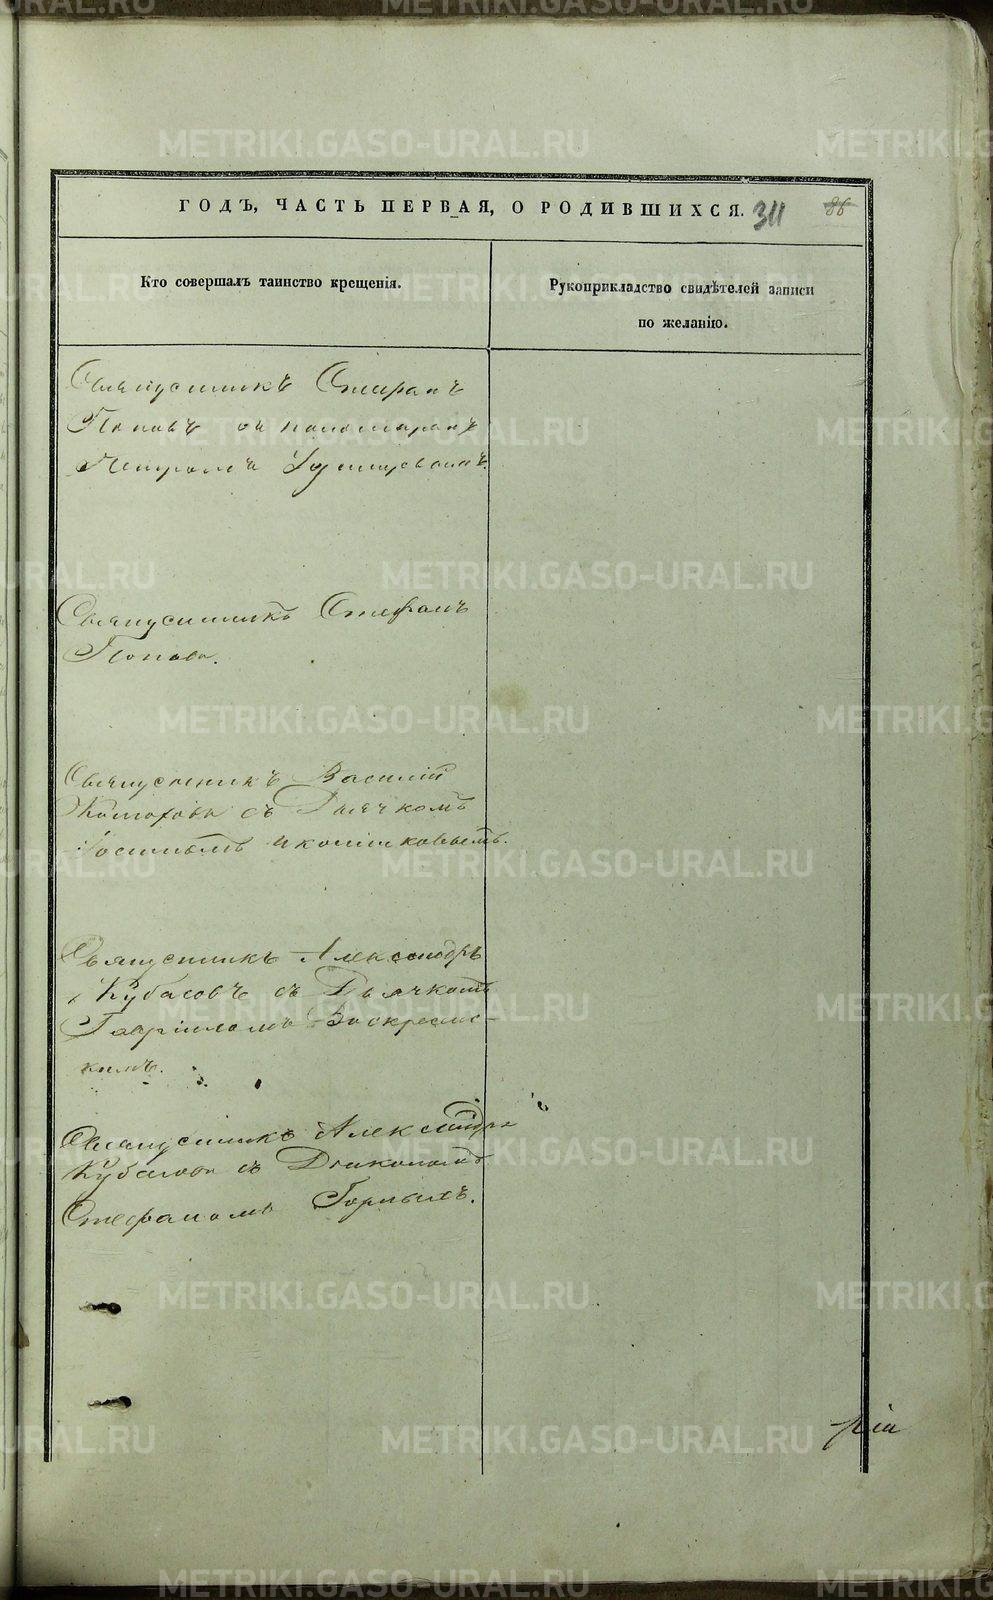 ГОДЪ, ЧАСТЬ ПЕРВАЯ, О РОДИВШИХСЯ. 311 86
Кто совершалъ таинство крещенія.
Рукоприкладство свидѣтелей записи
по желанію.
Священникъ Стефанъ
Поповъ съ пономаремъ
Петромъ
Священникъ Стефанъ
Поповъ.
Священникъ Василій
съ Дьячкомъ
Иконниковымъ.
Священникъ Александръ
Кубасовъ съ Дьячкомъ
Гавріиломъ Воскресенс-
кимъ.
Священникъ Александръ
Кубасовъ съ Діакономъ
Стефаномъ Горныхъ.
METRIKI.GASO-URAL.RU